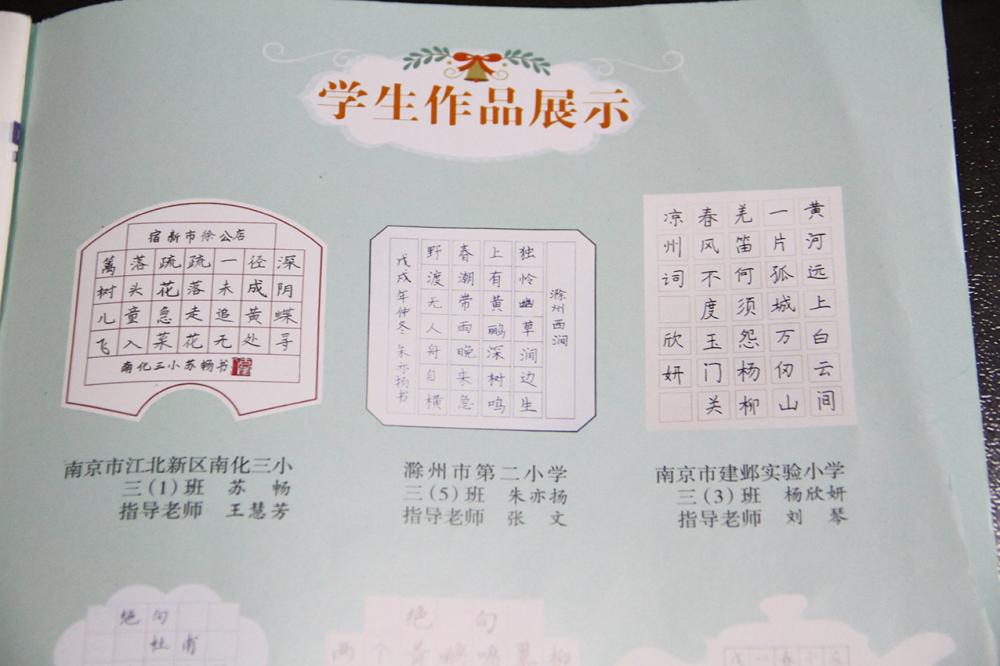 学生作品展示
宿新市徐公店
篱落疏疏一径深
树头花落未成阴
儿童急走追黄蝶
飞入菜花无处寻
南化三小苏畅书
南京市江北新区南化三小
三（1）班 苏 畅
指导老师 王慧芳
滁州西涧
独怜幽草涧边生
上有黄鹂深树鸣
春潮带雨晚来急
野渡无人舟自横
戊戌年仲冬 朱亦扬书
滁州市第二小学
三（5）班 朱亦扬
指导老师 张 文
黄河远上白云间
一片孤城万仞山
羌笛何须怨杨柳
春风不度玉门关
凉州词 欣妍
南京市建邺实验小学
三（3）班 杨欣妍
指导老师 刘 琴
绝句
杜甫
绝句
两个黄鹂鸣翠柳